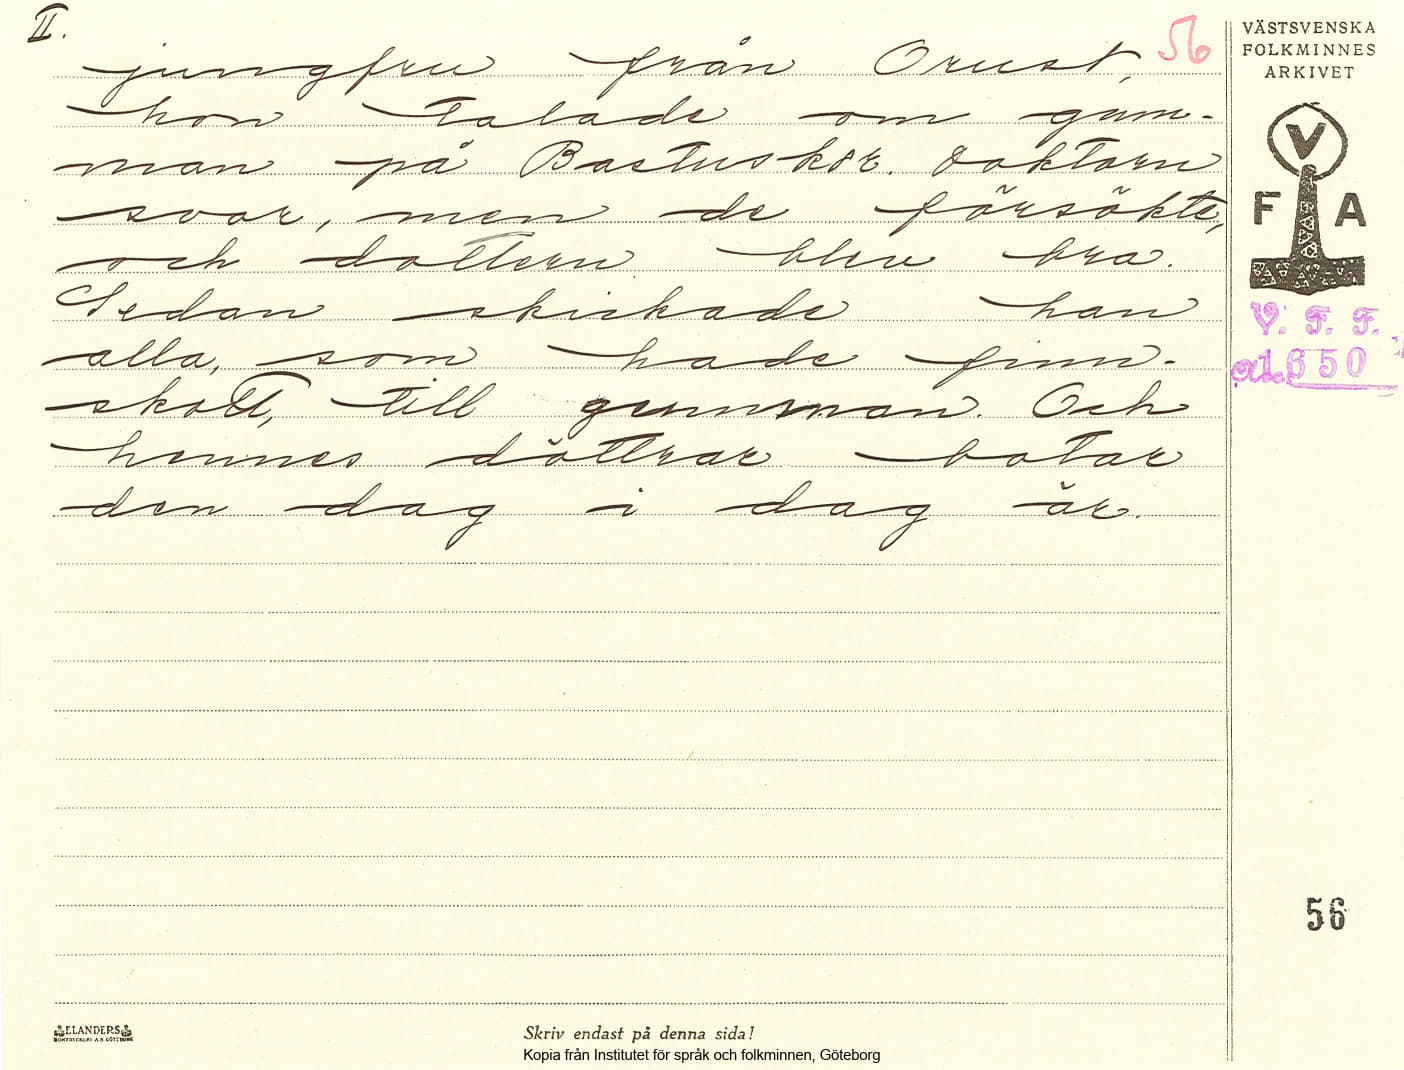 II.
56
jungfru från Orust,
hon talade om gum-
man på Bastuskär. Doktorn
svor, men de försökte,
och dottern blev bra.
Sedan skickade han
alla, som hade finn-
skott, till gumman. Och
hennes döttrar botar
den dag i dag är.
VÄSTSVENSKA
FOLKMINNES
ARKIVET
V
F A
V. F. F.
1650
56
ELANDERS
BOKTRYCKERI A.B. GÖTEBORG
Skriv endast på denna sida!
Kopia från Institutet för språk och folkminnen, Göteborg